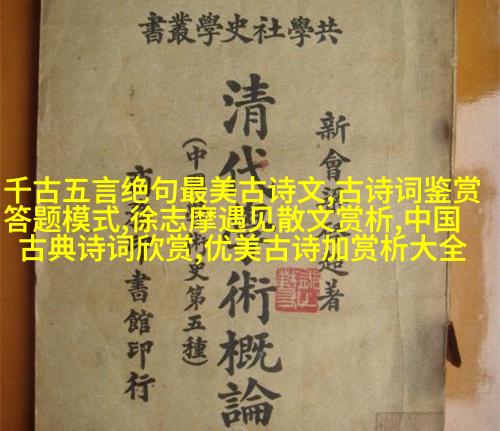 共學社史學叢書
新會
著
清代
術概論
(中
史第五種)
書館印行
千古五言绝句最美古诗文,古诗词鉴赏
答题模式,徐志摩遇见散文赏析,中国
古典诗词欣赏,优美古诗加赏析大全